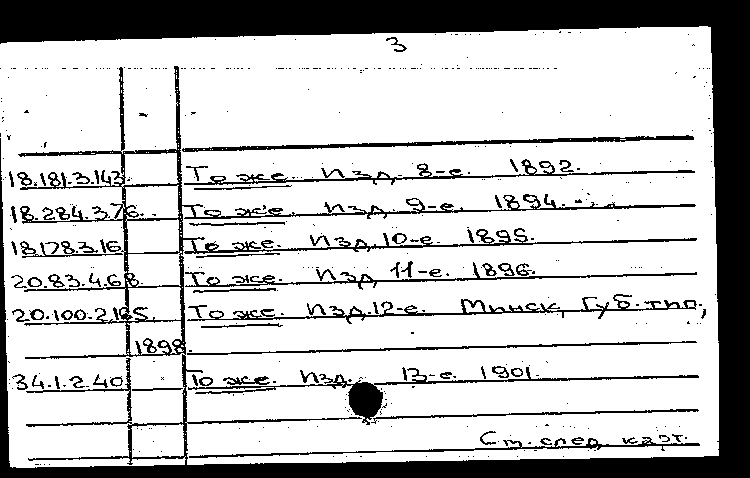 3
18.181.3.143. То же. Изд. 8-е. 1892.
18.284.3.76. То же. Изд. 9-е. 1894.
18.178.3.16. То же. Изд. 10-е. 1895.
20.83.4.68. То же. Изд. 11-е. 1896.
20.100.2.185. То же. Изд. 12-е. Минск, Губ. тип.,
1898.
34.1.2.40. То же. Изд. 13-е. 1901.
См. след. карт.